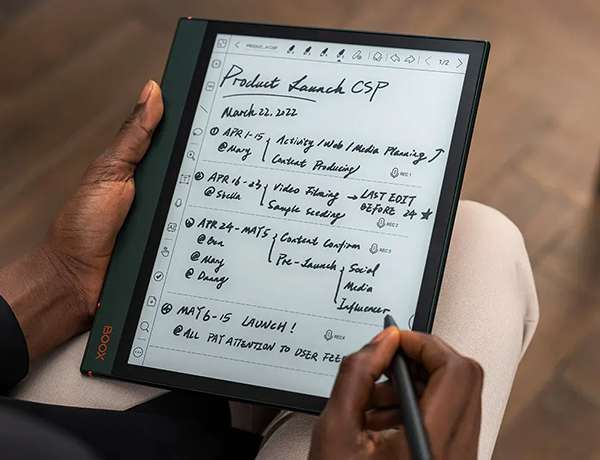 PRODUCT...H CSP
1/2
Product Launch CSP
March 22, 2022
① APR 1-15 { Activity / Web / Media Planning
@Mary Content Producing
REC 1
② APR 16-23 { Video Filming → LAST EDIT
@Stella Sample Seeding BEFORE 24 ★
REC 2
③ APR 24-MAY 5 { Content Confirm
REC 3
@Ben Pre-Launch { Social
@Mary Media
@Danny Influencer
④ MAY 6-15 LAUNCH!
REC 4
@ALL PAY ATTENTION TO USER FEE
BOOX